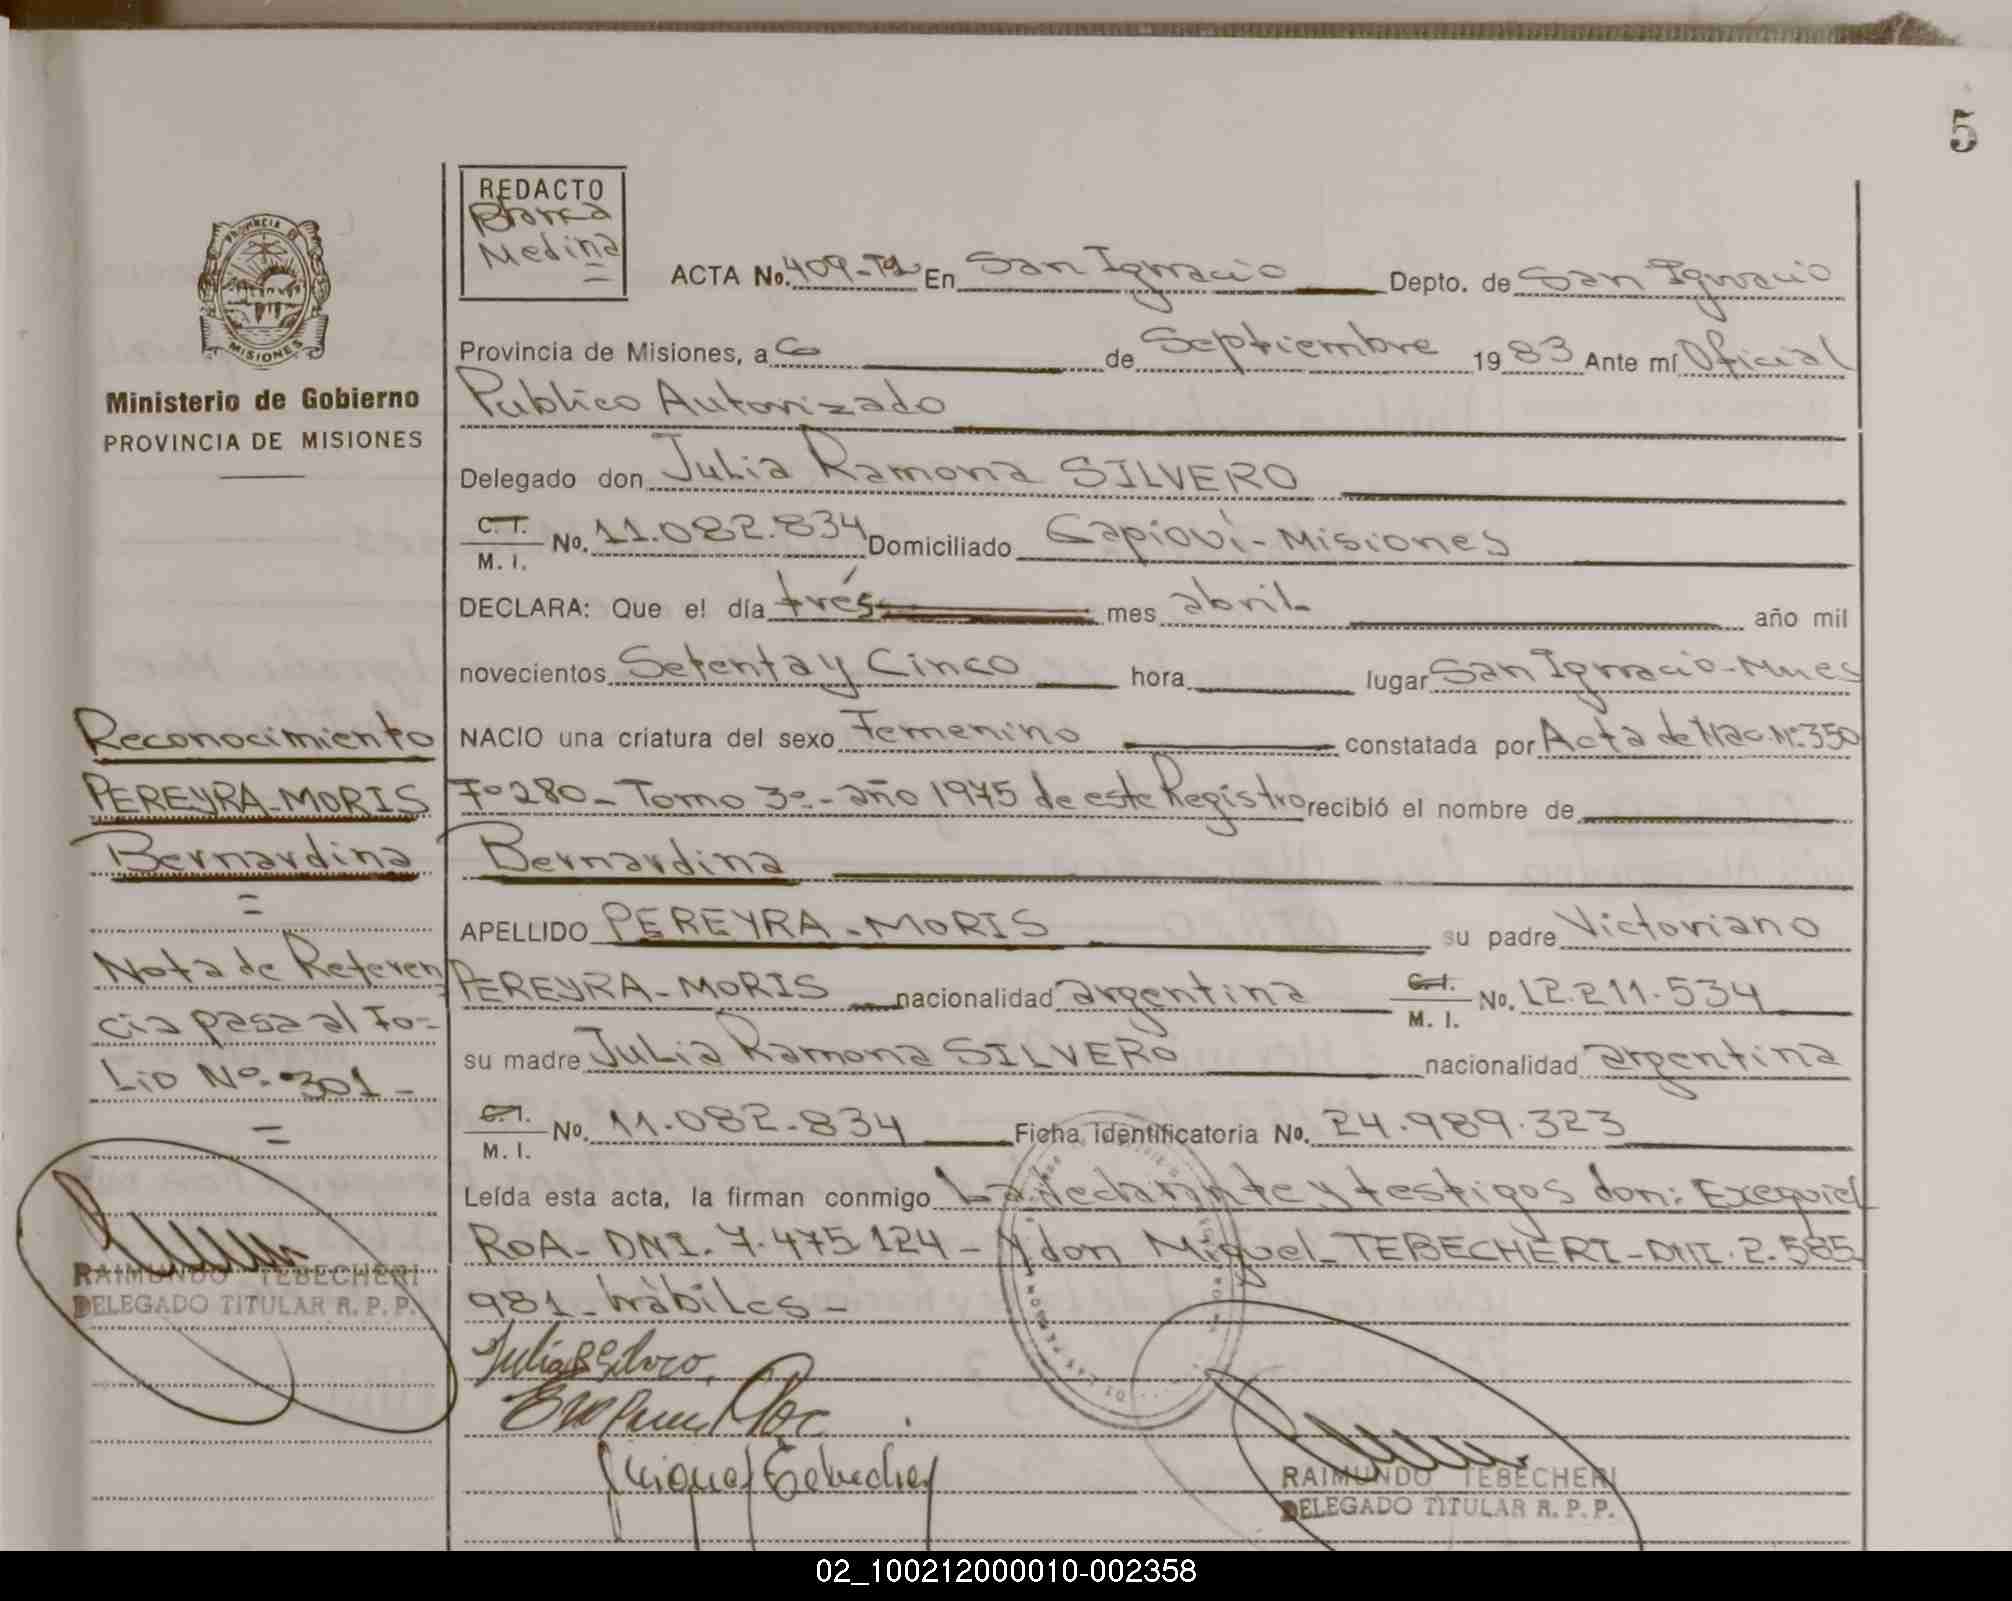 5
REDACTO
Blanca
Medina
PROVINCIA DE
MISIONES
Ministerio de Gobierno
PROVINCIA DE MISIONES
ACTA No. 409-T2 En San Ignacio Depto. de San Ignacio
Provincia de Misiones, a 6 de Septiembre 1983 Ante mí Oficial
Publico Autorizado
Delegado don Julia Ramona SILVERO
C. I. M. I. No. 11.082.834 Domiciliado Capioví-Misiones
DECLARA: Que el día trés mes abril año mil
novecientos Setenta y Cinco hora lugar San Ignacio-Mnes
NACIO una criatura del sexo Femenino constatada por Acta de Nac. Nº.350
Fº 280- Tomo 3º.- año 1975 de este Registro recibió el nombre de
Bernardina
APELLIDO PEREYRA-MORIS su padre Victoriano
PEREYRA-MORIS nacionalidad argentina C. I. M. I. No. 12.211.534
su madre Julia Ramona SILVERO nacionalidad argentina
C. I. M. I. No. 11.082.834 Ficha identificatoria No. 24.989.323
Leída esta acta, la firman conmigo La declarante y testigos don: Exequiel
ROA- DNI. 7.475.124 - y don Miguel-TEBECHERI-DNI. 2.585
981-hábiles-
Reconocimiento
PEREYRA-MORIS
Bernardina
Nota de Referen
cia pasa al Fo-
lio Nº. 301-
RAIMUNDO TEBECHERI
DELEGADO TITULAR R. P. P.
Julia R Silvero
Miguel Tebecheri
RAIMUNDO TEBECHERI
DELEGADO TITULAR R. P. P.
02_100212000010-002358